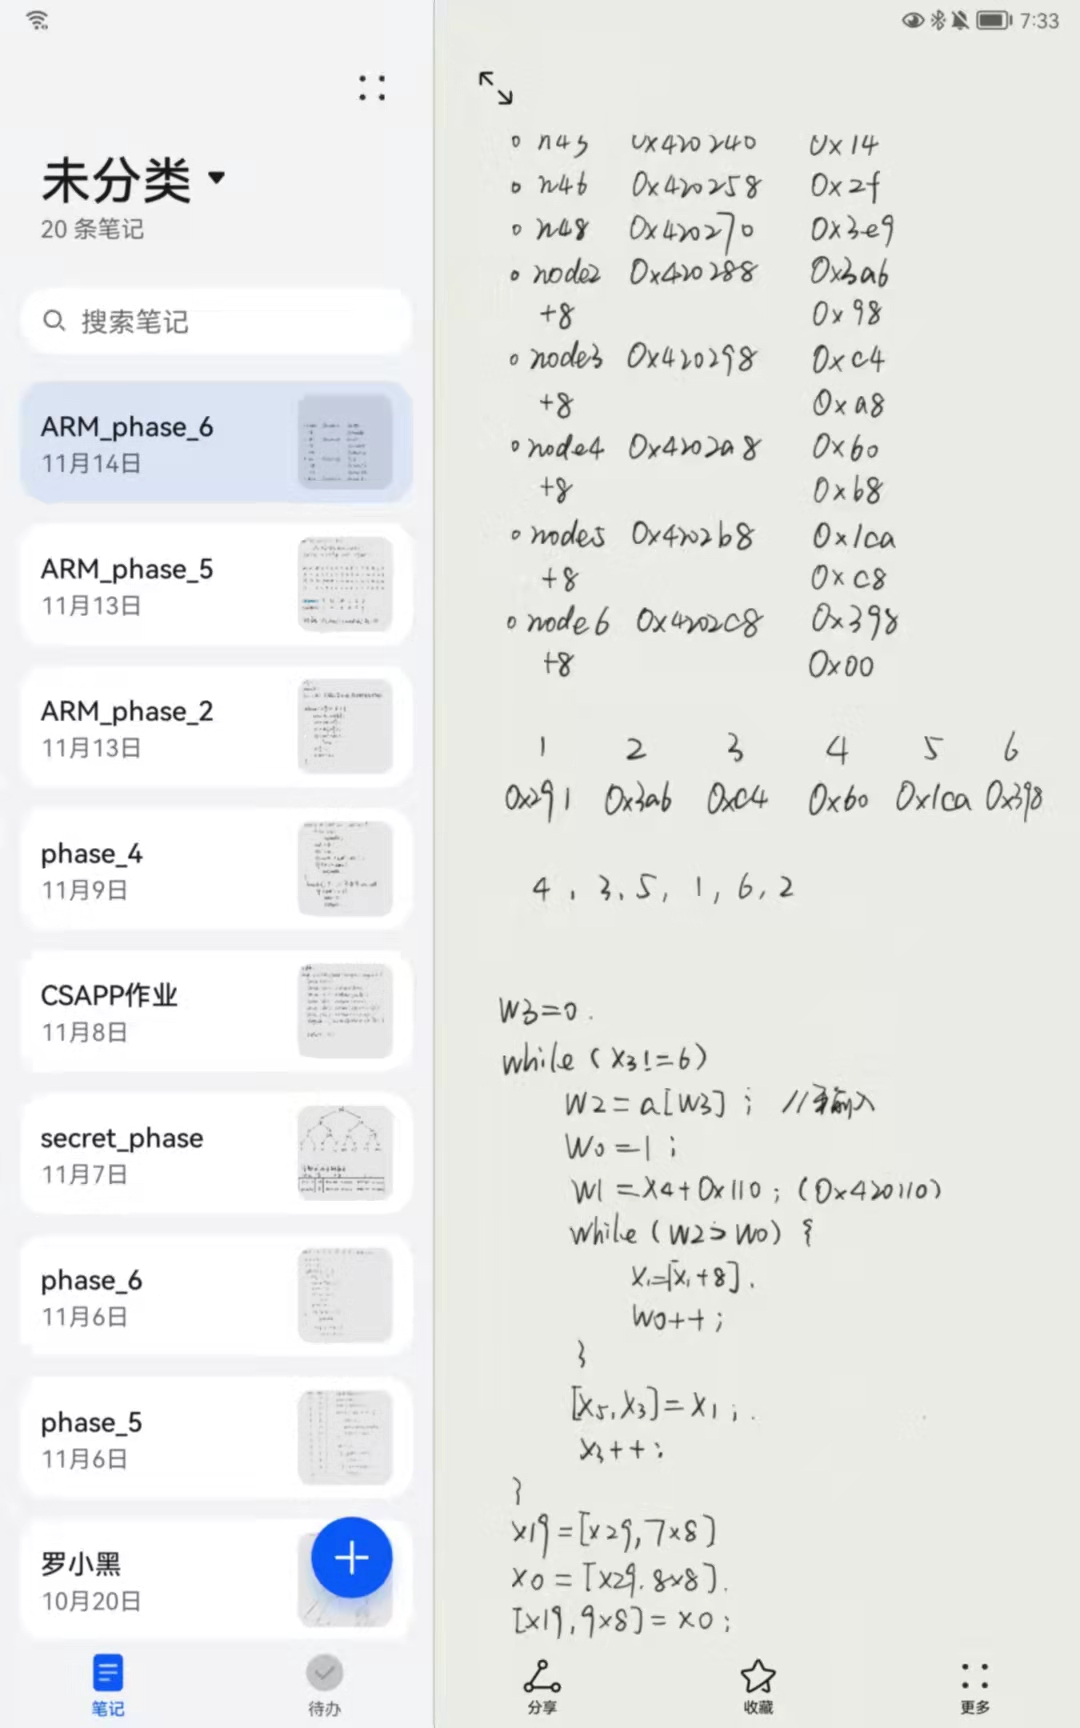 7:33
未分类
20 条笔记
搜索笔记
ARM_phase_6
11月14日
ARM_phase_5
11月13日
ARM_phase_2
11月13日
phase_4
11月9日
CSAPP作业
11月8日
secret_phase
11月7日
phase_6
11月6日
phase_5
11月6日
罗小黑
10月20日
笔记
待办
n43 0x420240 0x14
n46 0x420258 0x2f
n48 0x420270 0x3e9
node2 0x420288 0x3ab
+8 0x98
node3 0x420298 0xc4
+8 0xa8
node4 0x4202a8 0x60
+8 0xb8
node5 0x4202b8 0x1ca
+8 0xc8
node6 0x4202c8 0x398
+8 0x00
1 2 3 4 5 6
0x291 0x3ab 0xc4 0x60 0x1ca 0x398
4, 3, 5, 1, 6, 2
W3=0.
while (X3!=6)
W2=a[W3]; //输入
W0=1;
W1=X4+0x110; (0x420110)
while (W2>W0) {
X1=[X1+8].
W0++;
}
[X5,X3]=X1;
X3++;
}
X19=[X29,7x8]
X0=[X29.8x8].
[X19,9x8]=X0;
分享
收藏
更多